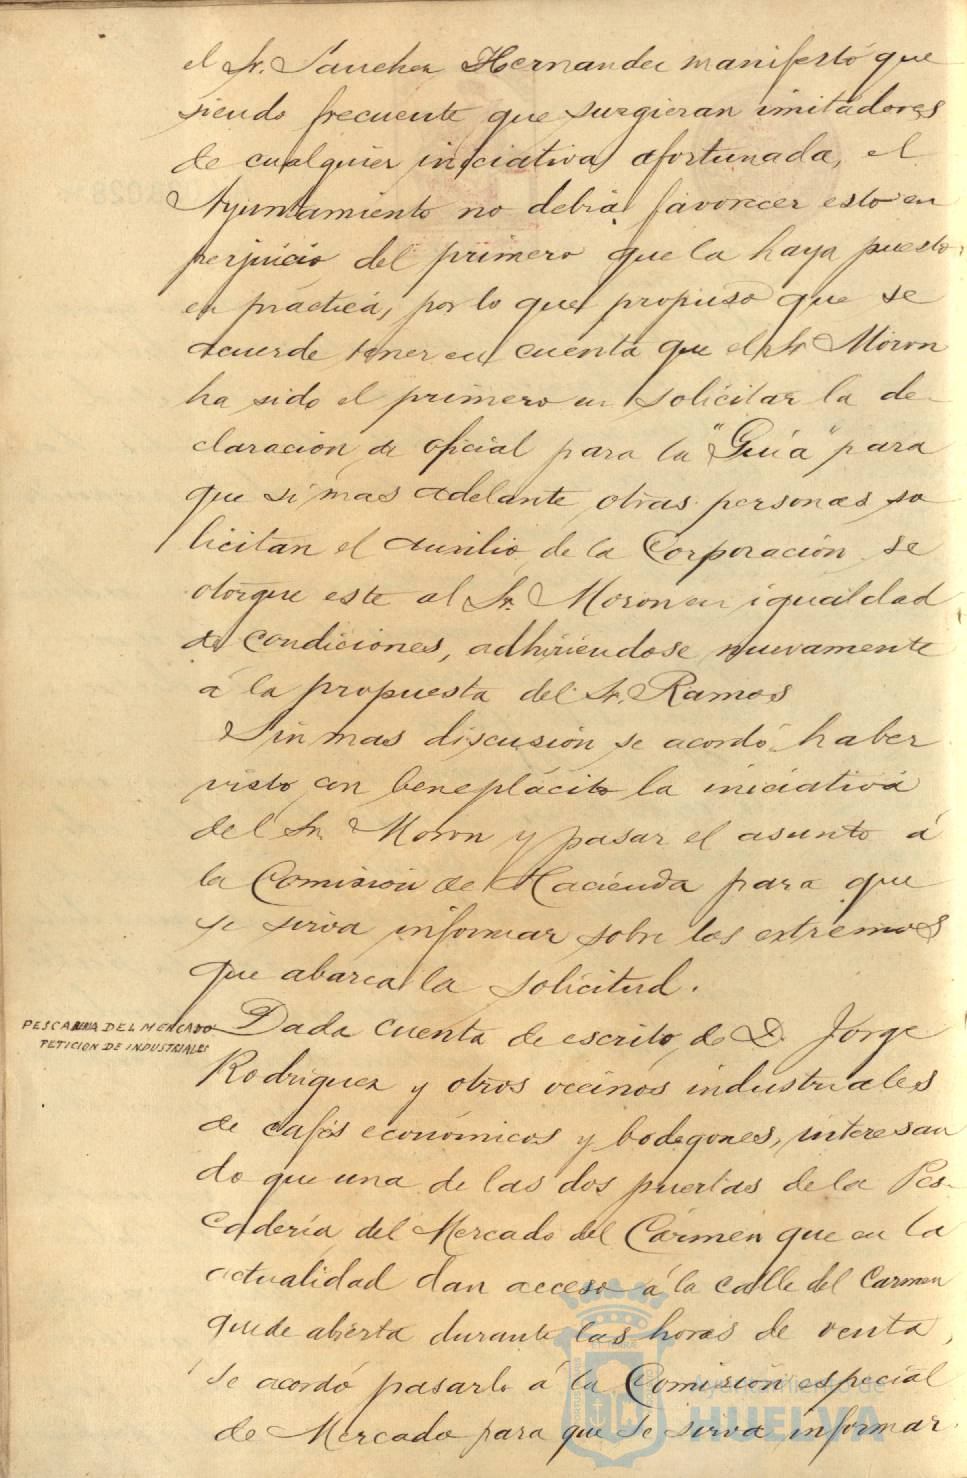 el Sr. Sanchez Hernandez manifestó que
siendo frecuente que surgieran imitadores
de cualquier iniciativa afortunada, el
Ayuntamiento no debia favorecer esto en
perjuicio del primero que la haya puesto
en práctica, por lo que propuso que se
acuerde tener en cuenta que el Sr Moron
ha sido el primero en solicitar la de-
claración de oficial para la "Guía" para
que si mas adelante otras personas so
licitan el auxilio de la Corporación se
otorgue este al Sr. Moron en igualdad
de condiciones, adhiriéndose nuevamente
á la propuesta del Sr. Ramos
Sin mas discusión se acordó haber
visto con beneplácito la iniciativa
del Sr. Moron y pasar el asunto á
la Comisión de Hacienda para que
se sirva informar sobre los extremos
que abarca la solicitud.
PESCADERIA DEL MERCADO
PETICION DE INDUSTRIALES
Dada cuenta de escrito de D. Jorge
Rodriguez y otros vecinos industriales
de cafés económicos y bodegones, interesan
do que una de las dos puertas de la Pes-
cadería del Mercado del Cármen que en la
actualidad dan acceso á la calle del Carmen
quede abierta durante las horas de venta,
se acordó pasarlo á la Comisión especial
de Mercado para que se sirva informar
Ayuntamiento de
HUELVA